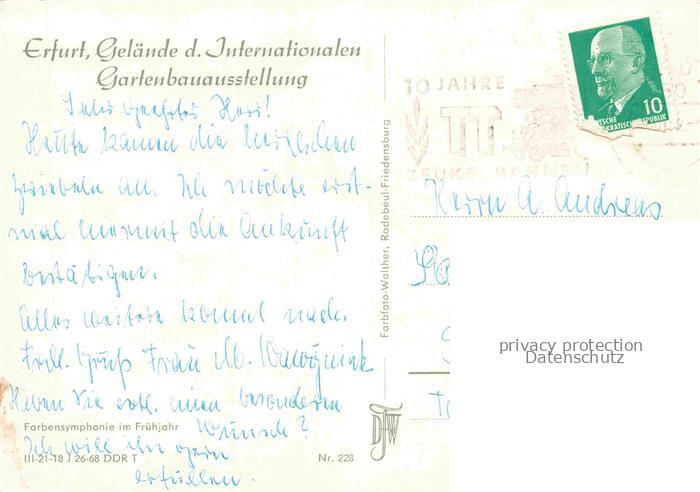 Erfurt, Gelände d. Internationalen
Gartenbauausstellung
Sehr geehrter Herr!
Heute kamen die herrlichen
Zwiebeln an. Ich möchte erst-
mal hiermit die Ankunft
bestätigen.
Alles weitere kommt nach.
Frdl. Gruß Frau M. Wawőzniak
Haben Sie evtl. einen besonderen
Wunsch?
Ich will ihn gern
erfüllen.
Farbensymphonie im Frühjahr
III-21-18 J 26-68 DDR T
Nr. 228
Farbfoto-Walther, Radebeul-Friedensburg
10 JAHRE
TT
ZEUKE BAHNEN
10
DEUTSCHE
DEMOKRATISCHE REPUBLIK
Herrn A. Andreas
privacy protection
Datenschutz